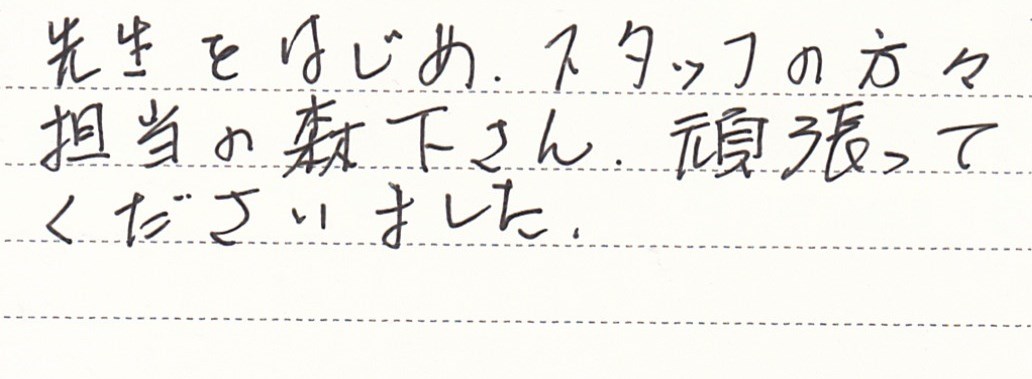 先生をはじめ、スタッフの方々
担当の森下さん、頑張って
くださいました。